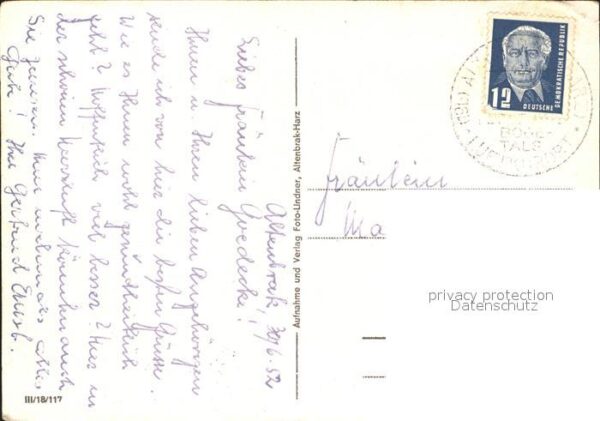 Altenbrak, 30/6.52
Liebes Fräulein
Goedecke!
Ihnen u. Ihren lieben Angehörigen
sende ich von hier die besten Grüsse.
Wie es Ihnen wohl gesundheitlich
geht? Hoffentlich viel besser? Hier in
der schönen Herrlichkeit könnten auch
Sie
Gute! Ihre Gertrud
III/18/117
Aufnahme und Verlag Foto-Lindner, Altenbrak-Harz
Fräulein
Ma
12
DEUTSCHE
DEMOKRATISCHE REPUBLIK
BODE
TALS
privacy protection
Datenschutz